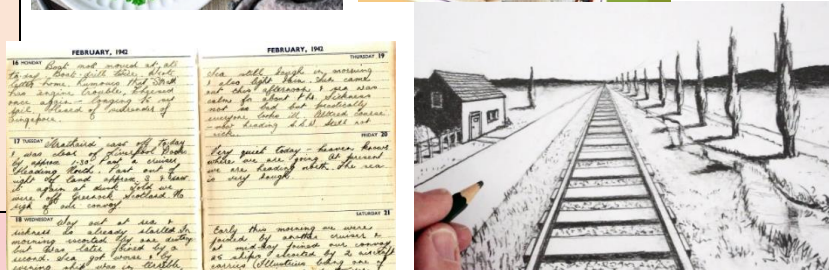 FEBRUARY, 1942
16 MONDAY Boat not moved at all
to-day. Boat drill three. Wrote
letter home. Rumours that Strath
has engine trouble. Cheered
once again – longing to my
. Heard of surrender of
Singapore.
17 TUESDAY Strathaird cast off to-day
& was clear of Liverpool Docks
by approx 1-30. Past a cruiser
Heading North. Past out of
sight of land approx 3 & saw
it again at dusk. Told we
were off Greenock Scotland. No
sign of our convoy
18 WEDNESDAY Way out at sea &
sickness has already started. In
morning escorted by one destroy
but three later joined by a
second. Sea got worse & by
evening ship was in terrible
FEBRUARY, 1942
THURSDAY 19
Sea still rough in morning
& also light rain. Then came
out this afternoon & sea was
calm for about 4 hrs. Sickness
not so bad but practically
everyone looks ill. Altered course
– now heading S.S.W. Still not
FRIDAY 20
Very quiet today – heaven knows
where we are going. At present
we are heading north. The sea
is very rough
SATURDAY 21
Early this morning we were
joined by another cruiser &
at mid-day joined our convoy
25 ships escorted by 2 aircraft
carriers (Illustrious being one of